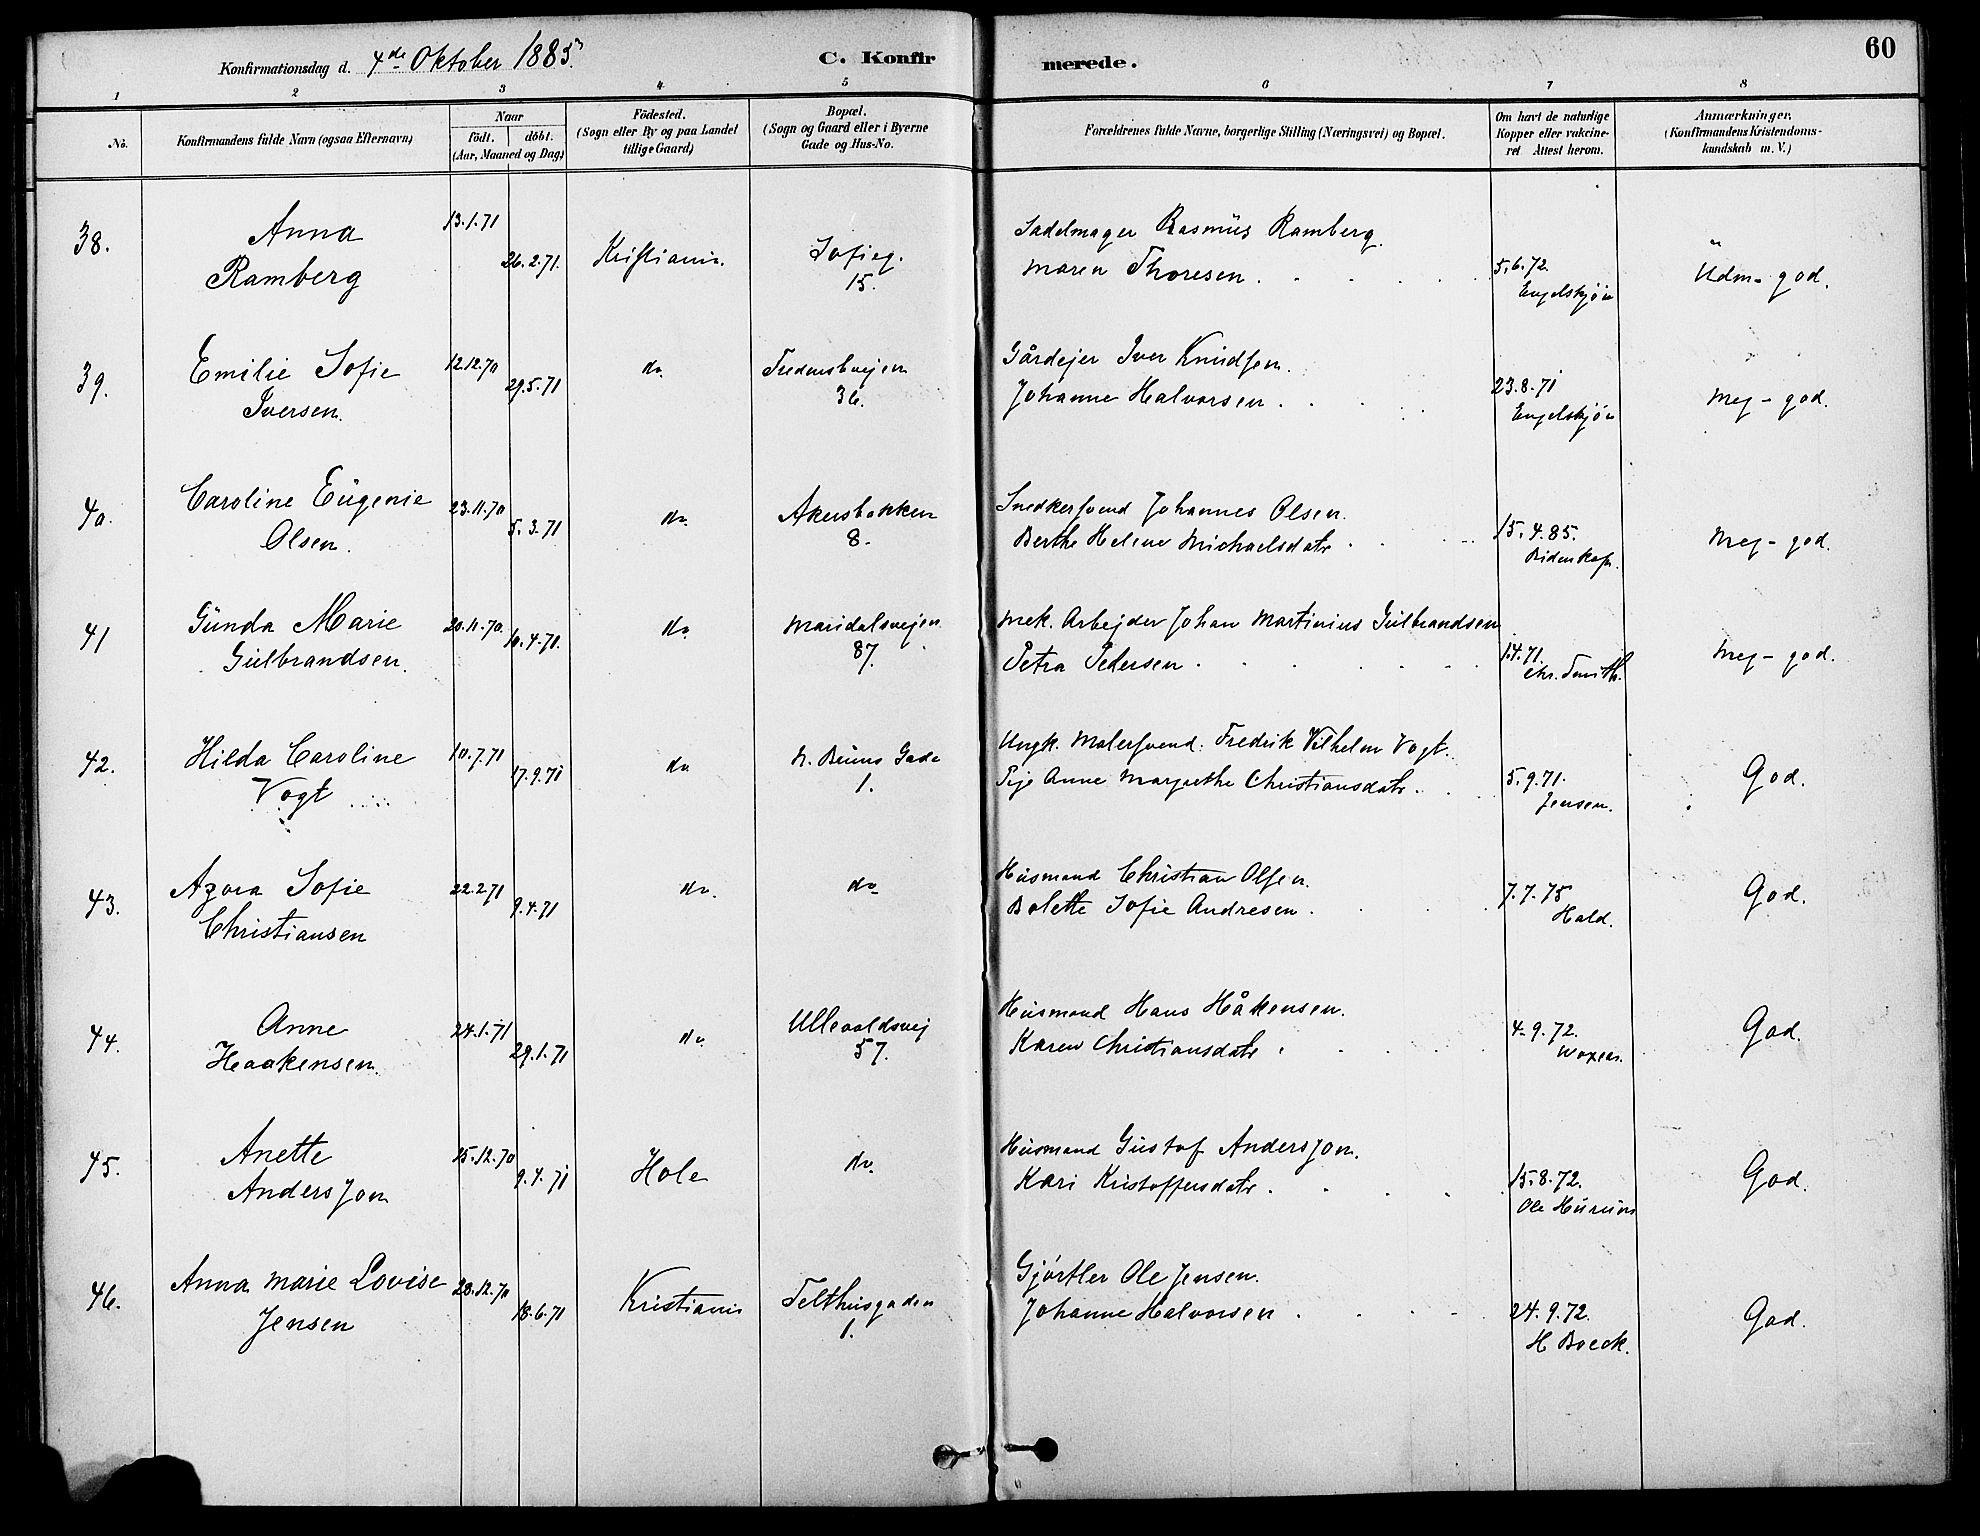 Konfirmationsdag d. 4de Oktober 1885.
C. Konfirmerede.
60
1 2 3 4 5 6 7 8
No.
Konfirmandens fulde Navn (ogsaa Efternavn)
Naar
födt. döbt.
(Aar, Maaned og Dag)
Födested.
(Sogn eller By og paa Landet
tillige Gaard)
Bopæl.
(Sogn og Gaard eller i Byerne
Gade og Hus-No.
Forældrenes fulde Navne, borgerlige Stilling (Næringsvei) og Bopæl.
Om havt de naturlige
Kopper eller vakcine-
ret Attest herom.
Anmærkninger,
(Konfirmandens Kristendoms-
kundskab m. V.)
38. Anna 13.1.71 Sadelmager Rasmus Ramberg.
Ramberg 26.2.71. Kristiania. Sofieg. Maren Thoresen. 5.6.72. Udm-god.
15. Engelskjøn
39. Emilie Sofie 12.12.70 do. Fredensbvejen Gårdejer Iver Knudsen.
Iversen. 29.5.71 36. Johanne Halvorsen. 23.8.71 Meg-god.
Engelskjøn
40. Caroline Eugenie 23.11.70 Snedkersvend Johannes Olsen.
Olsen. 5.3.71 do. Akersbakken 8. Berthe Helene Michaelsdatr 15.4.85. Meg-god.
41 Gunda Marie 20.11.70. do. Maridalsvejen Mek. Arbejder Johan Martinius Gulbrandsen
Gulbrandsen. 10.4.71. 87. Petra Pedersen. 1.4.71. Meg-god.
Chr. Smith.
42. Hilda Caroline 10.7.71 N. Bruns Gade Ungk. Malersvend: Fredrik Vilhelm Vogt.
Vogt 17.9.71 do. 1. Pige Anne Margrethe Christiansdatr. 5.9.71. God.
Jensen.
43. Azora Sofie 22.2.71 do. do. Husmand Christian Olsen.
Christiansen 9.4.71 Bolette Sofie Andresen. 7.7.75 God.
Hald.
44. Anne 24.1.71 Ullevoldsvej Husmand Hans Håkensen.
Haakensen. 29.1.71 do. 57. Karen Christiansdatr. 4.9.72. God.
45. Anette 15.12.70 Husmand Gustaf Andersson.
Andersson 9.4.71 Hole do. Kari Kristoffersdatr. 15.8.72. God.
Ole Hurum
46. Anna Marie Lovise 20.12.70 Gjörtler Ole Jensen.
Jensen 18.6.71 Kristiania Telthusgaden 1. Johanne Halvorsen 24.9.72. God.
H Boeck.